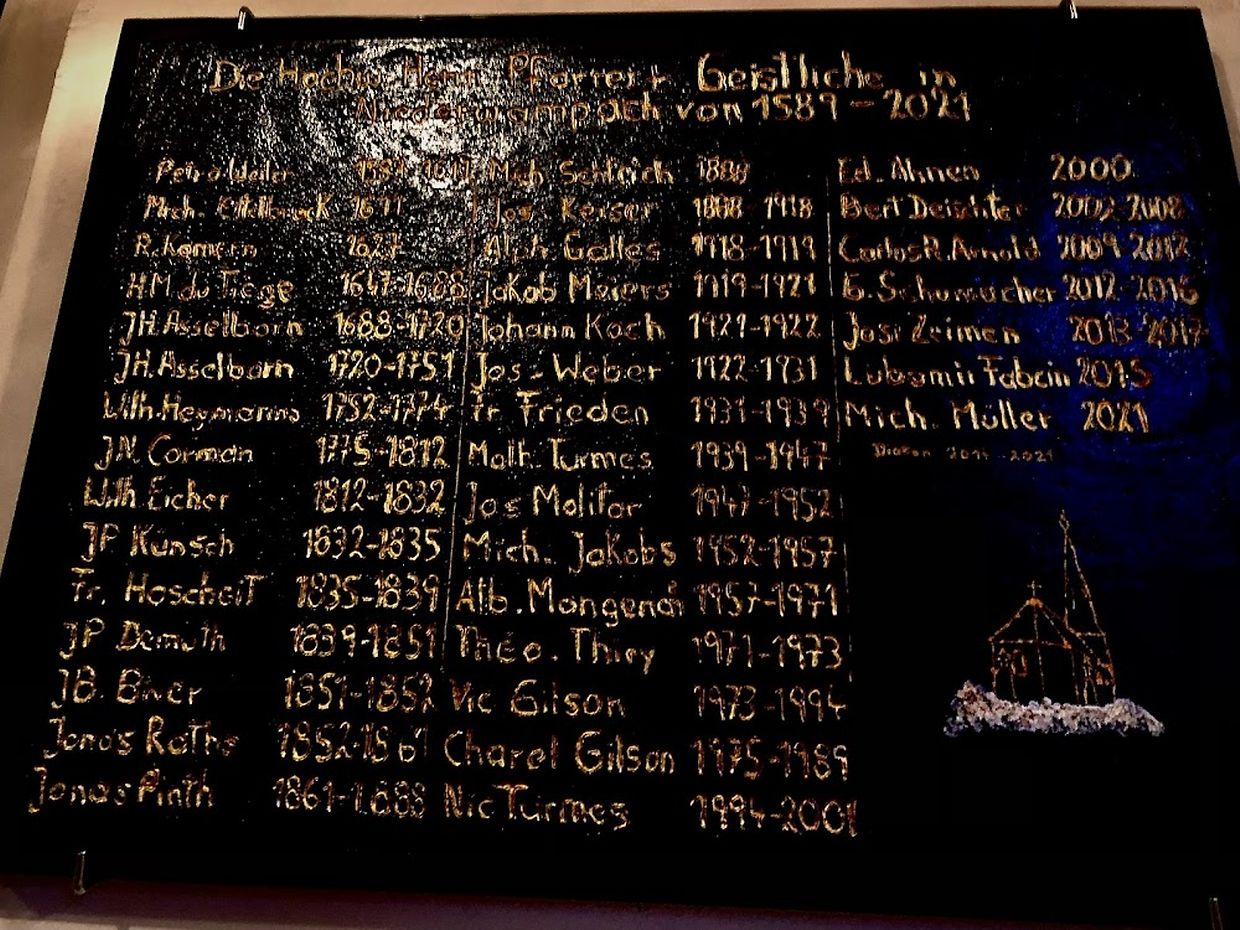 Die Hochw. Herrn Pfarrer + Geistliche in
Niederwampach von 1589 - 2021
Petro Weiler 1589-1611
Mich. Ettelbruck 1611
R. Kamern 1627
H.M. du Fiege 1647-1688
JH. Asselborn 1688-1720
JH. Asselborn 1720-1751
Wilh. Heymanns 1752-1774
J.N. Corman 1775-1812
Wilh. Eicher 1812-1832
JP Künsch 1832-1835
Fr. Hoscheit 1835-1839
JP Demuth 1839-1851
JB. Biver 1851-1852
Jonas Roths 1852-1861
Jonas Pinth 1861-1888
Mich Schlrich 1888
Jos. Keiser 1888-1918
Alph. Galles 1918-1919
Jakob Meiers 1919-1921
Johann Koch 1921-1922
Jos. Weber 1922-1931
Fr Frieden 1931-1939
Math. Turmes 1939-1947
Jos Molitor 1947-1952
Mich. Jakobs 1952-1957
Alb. Mongenast 1957-1971
Théo. Thiry 1971-1973
Vic Gilson 1973-1994
Charel Gilson 1975-1989
Nic Turmes 1994-2001
Ed. Ahnen 2000
Bert Deischter 2002-2008
Carlos R. Arnold 2009-2012
G. Schumacher 2012-2016
Josi Zeimen 2013-2017
Lubomir Fabcin 2015
Mich. Müller 2021
Diakon 2014-2021